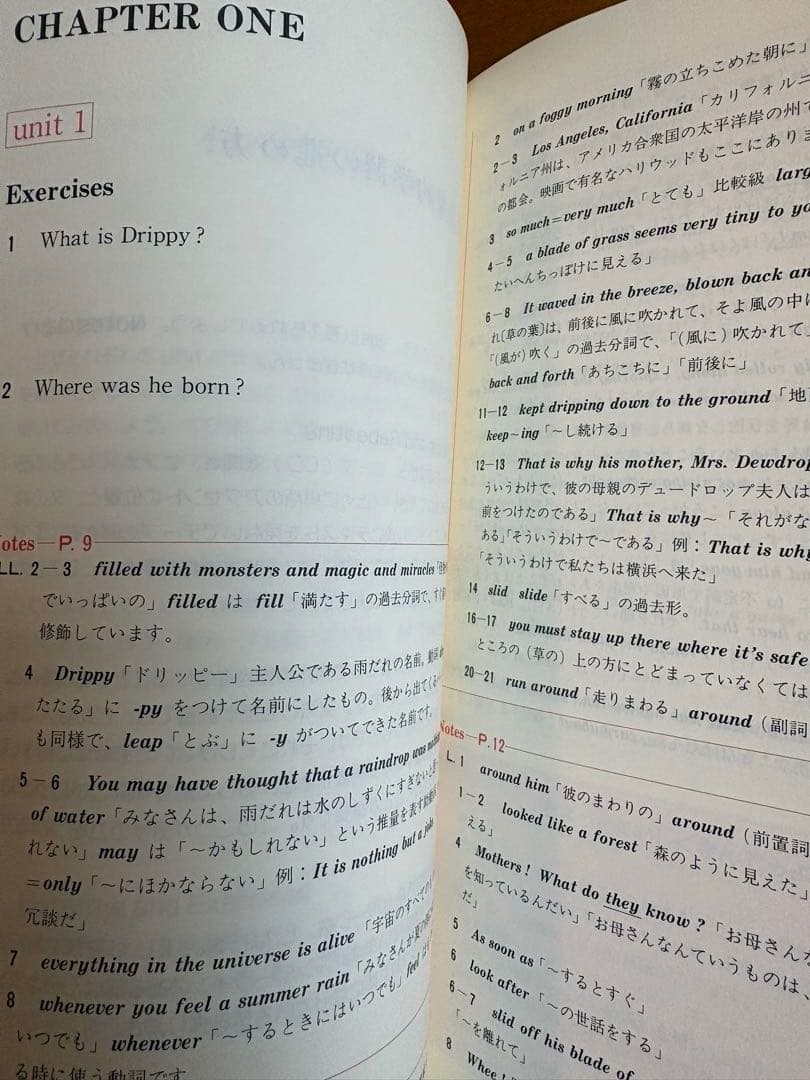 CHAPTER ONE
unit 1
Exercises
1 What is Drippy?
2 Where was he born?
Notes—P. 9
LL. 2-3 filled with monsters and magic and miracles
でいっぱいの」filled は fill「満たす」の過去分詞で、
修飾しています。
4 Drippy「ドリッピー」主人公である雨だれの名前。動詞
たたる」に -py をつけて名前にしたもの。後から出てくる
も同様で、leap「とぶ」に -y がついてできた名前です。
5-6 You may have thought that a raindrop was
of water「みなさんは、雨だれは水のしずくにすぎないと
れない」may は「〜かもしれない」という推量を表す
=only「〜にほかならない」例：It is nothing but a
冗談だ」
7 everything in the universe is alive「宇宙のすべての
8 whenever you feel a summer rain「みなさんが夏の
いつでも」whenever「〜するときにはいつでも」feel
る時に使う動詞です。
2 on a foggy morning「霧の立ちこめた朝に」
2-3 Los Angeles, California「カリフォルニ
ォルニア州は、アメリカ合衆国の太平洋岸の州で
の都会。映画で有名なハリウッドもここにありま
3 so much=very much「とても」比較級 larg
4-5 a blade of grass seems very tiny to yo
たいへんちっぽけに見える」
6-8 It waved in the breeze, blown back an
れ〔草の葉〕は、前後に風に吹かれて、そよ風の中に
「(風が) 吹く」の過去分詞で、「(風に) 吹かれて」
back and forth「あちこちに」「前後に」
11-12 kept dripping down to the ground「地
keep〜ing「〜し続ける」
12-13 That is why his mother, Mrs. Dewdrop
ういうわけで、彼の母親のデュードロップ夫人は
前をつけたのである」That is why〜「それがな
ある」「そういうわけで〜である」例：That is why
「そういうわけで私たちは横浜へ来た」
14 slid slide「すべる」の過去形。
16-17 you must stay up there where it's safe
ところの (草の) 上の方にとどまっていなくては
20-21 run around「走りまわる」around (副詞
Notes—P.12
L. 1 around him「彼のまわりの」around (前置詞
1-2 looked like a forest「森のように見えた」
える」
4 Mothers! What do they know?「お母さんな
を知っているんだい」「お母さんなんていうものは、
だ」
5 As soon as「〜するとすぐ」
6 look after「〜の世話をする」
6-7 slid off his blade of
「〜を離れて」
8 Whee!